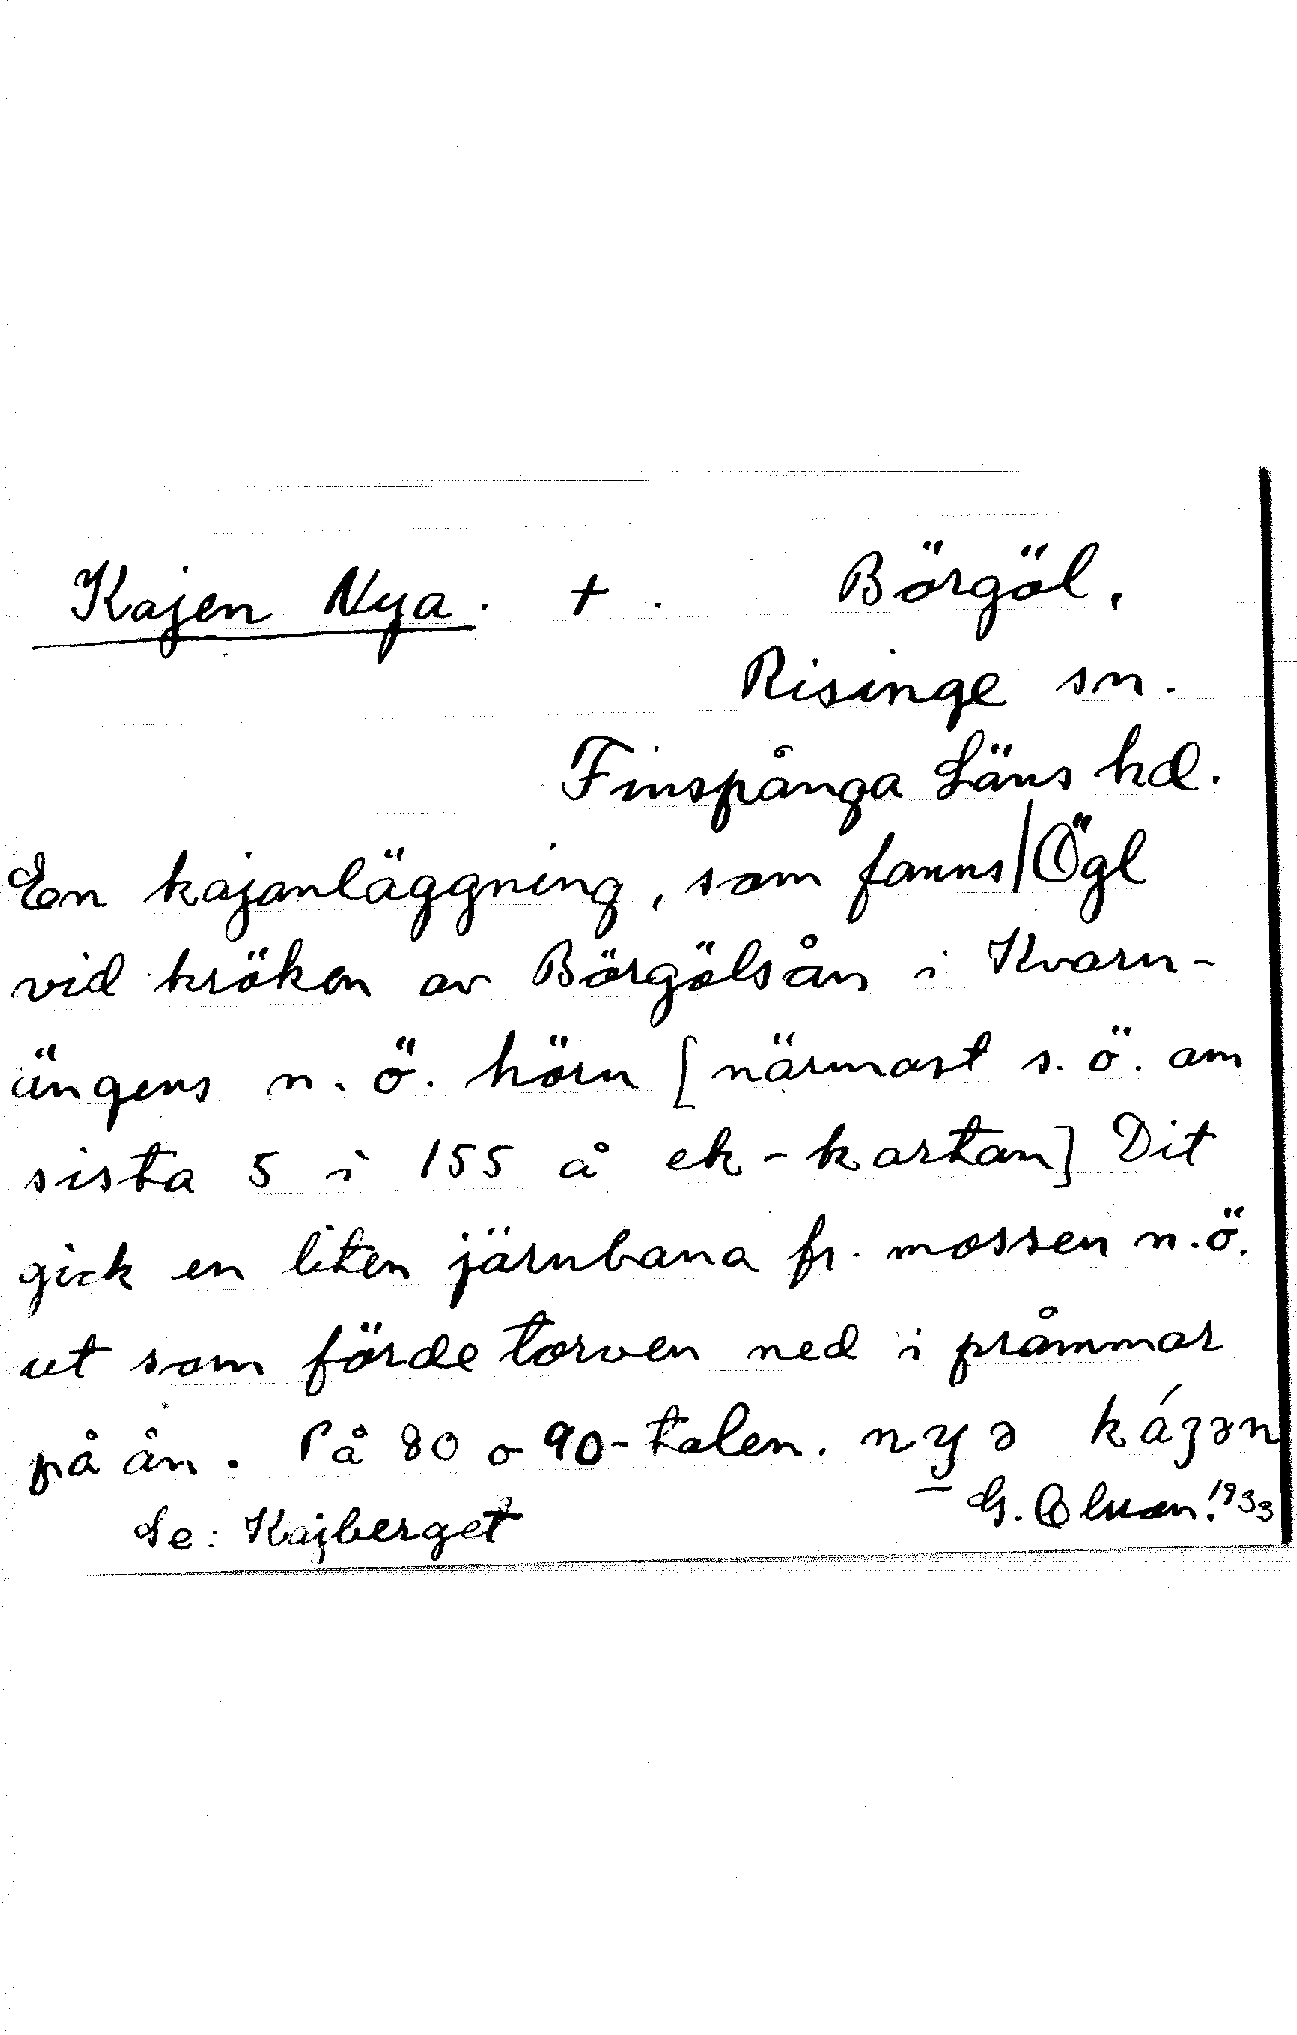 Kajen Nya. + . Börgöl,
Risinge sn.
Finspånga Läns hd.
En kajanläggning, som fanns / Ögl
vid kröken av Börgölsån i Kvarn-
ängens n. ö. hörn [närmast s. ö. om
sista 5 i 155 å ek-kartan] Dit
gick en liten järnbana fr. mossen n.ö.
ut som förde torven ned i pråmmar
på ån. På 80 o 90-talen. nyə kájən
Se: Kajberget G. 1933